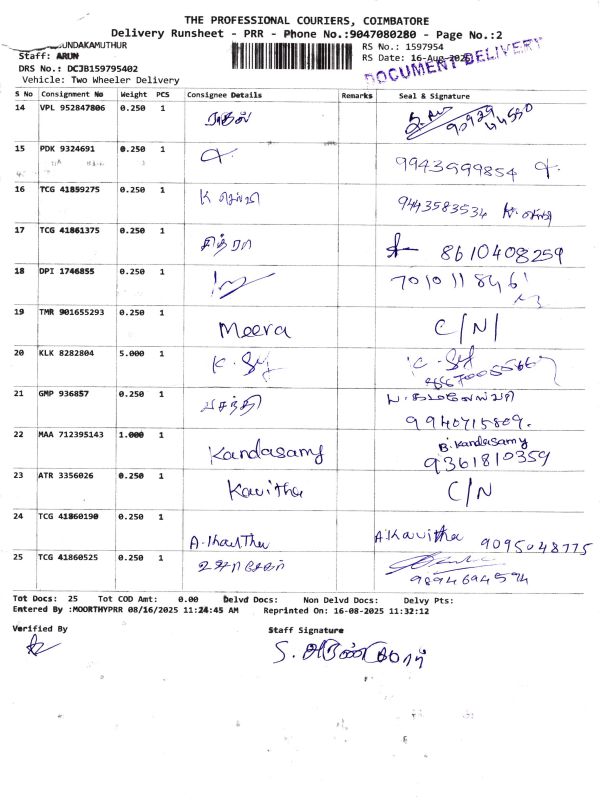 THE PROFESSIONAL COURIERS, COIMBATORE
Delivery Runsheet - PRR - Phone No.:9047080280 - Page No.:2
UNDAKAMUTHUR
RS No.: 1597954
Staff: ARUN
RS Date: 16-Aug-2025
DOCUMENT DELIVERY
DRS No.: DCJB159795402
Vehicle: Two Wheeler Delivery
S No Consignment No Weight PCS Consignee Details Remarks Seal & Signature
14 VPL 952847806 0.250 1
15 PDK 9324691 0.250 1 9943599854
16 TCG 41859275 0.250 1 K செல்வி 9443583534
17 TCG 41861375 0.250 1 சித்ரா 8610408259
18 DPI 1746855 0.250 1
19 TMR 901655293 0.250 1 Meera C/N/
20 KLK 8282804 5.000 1
21 GMP 936857 0.250 1 வசந்தி 9940715809.
22 MAA 712395143 1.000 1 Kandasamy B. Kandasamy
9361810359
23 ATR 3356026 0.250 1 Kavitha C/N
24 TCG 41860190 0.250 1 A. Kavitha A. Kavitha 9095048775
25 TCG 41860525 0.250 1 9894694594
Tot Docs: 25 Tot COD Amt: 0.00 Delvd Docs: Non Delvd Docs: Delvy Pts:
Entered By :MOORTHYPRR 08/16/2025 11:24:45 AM Reprinted On: 16-08-2025 11:32:12
Verified By Staff Signature